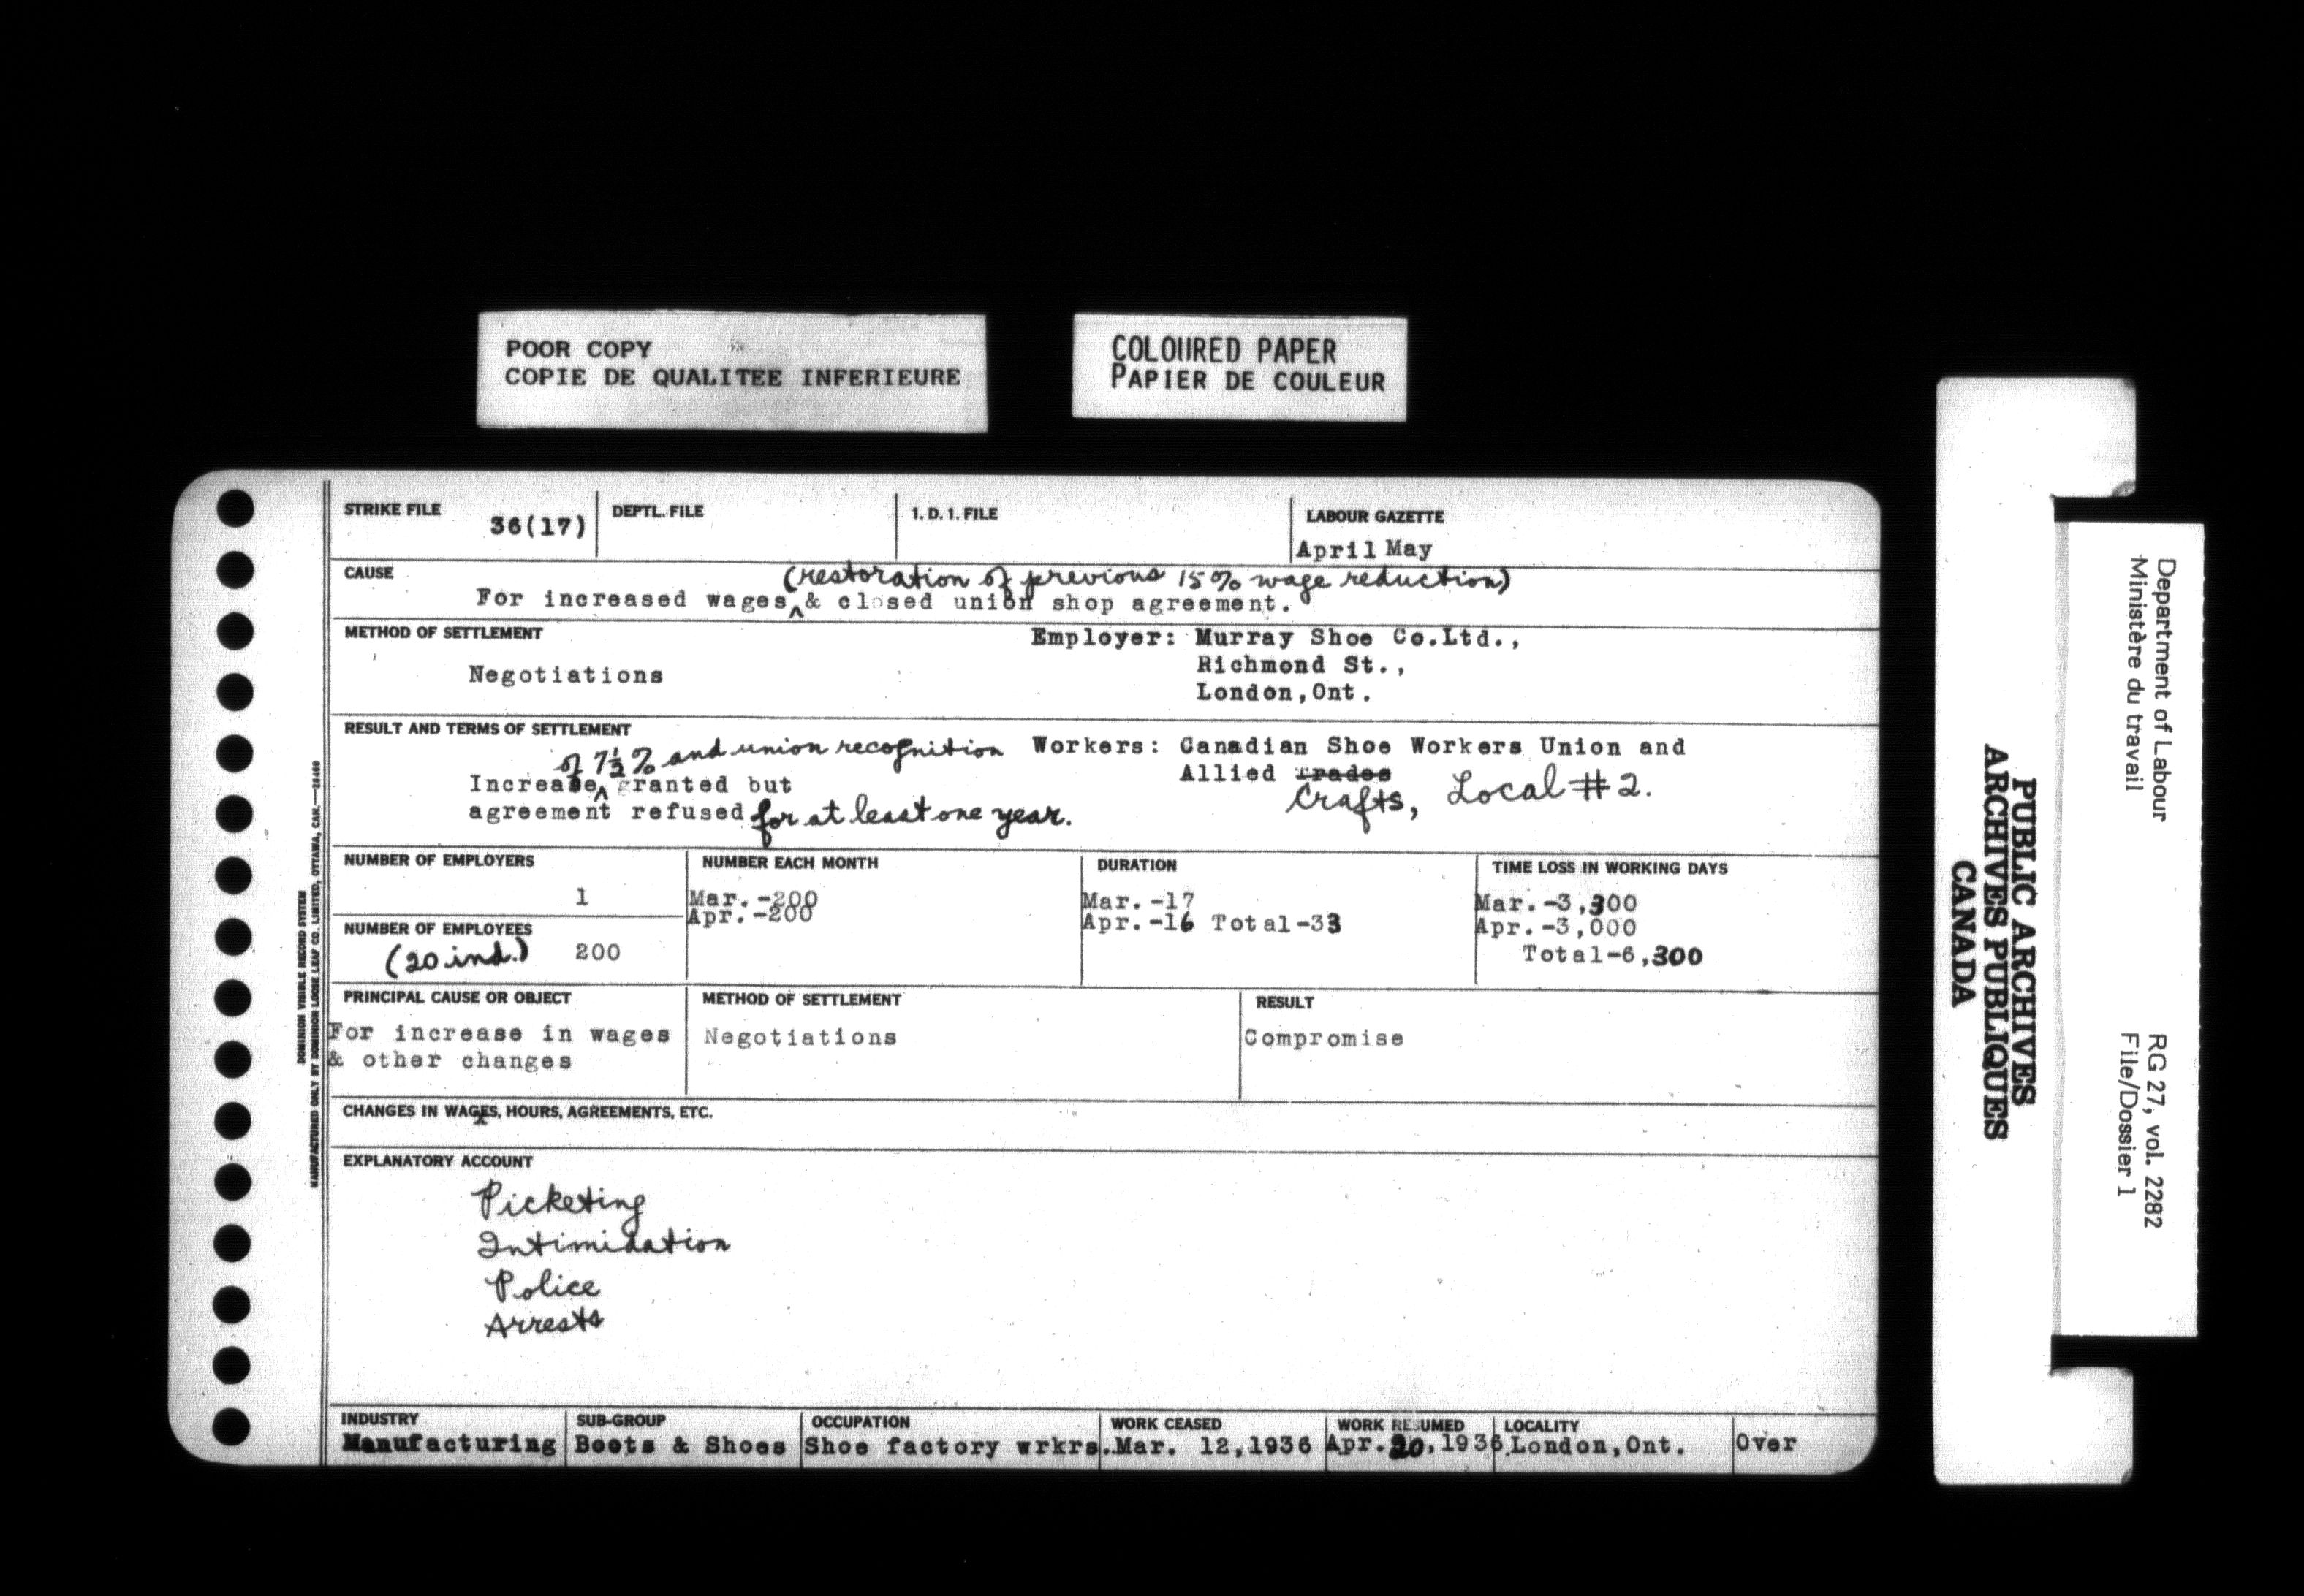 POOR COPY
COPIE DE QUALITEE INFERIEURE
COLOURED PAPER
PAPIER DE COULEUR
STRIKE FILE
36(17)
DEPTL. FILE
I. D. I. FILE
LABOUR GAZETTE
April May
CAUSE
(restoration of previous 15% wage reduction)
For increased wages ^ & closed union shop agreement.
METHOD OF SETTLEMENT
Negotiations
Employer: Murray Shoe Co.Ltd.,
Richmond St.,
London,Ont.
RESULT AND TERMS OF SETTLEMENT
of 7½% and union recognition
Increase ^ granted but
agreement refused for at least one year.
Workers: Canadian Shoe Workers Union and
Allied Trades
Crafts, Local #2.
NUMBER OF EMPLOYERS
1
NUMBER OF EMPLOYEES
(20 ind.) 200
NUMBER EACH MONTH
Mar.-200
Apr.-200
DURATION
Mar.-17
Apr.-16 Total-33
TIME LOSS IN WORKING DAYS
Mar.-3,300
Apr.-3,000
Total-6,300
PRINCIPAL CAUSE OR OBJECT
For increase in wages
& other changes
METHOD OF SETTLEMENT
Negotiations
RESULT
Compromise
CHANGES IN WAGES, HOURS, AGREEMENTS, ETC.
x
EXPLANATORY ACCOUNT
Picketing
Intimidation
Police
Arrests
INDUSTRY
Manufacturing
SUB-GROUP
Boots & Shoes
OCCUPATION
Shoe factory wrkrs.
WORK CEASED
Mar. 12,1936
WORK RESUMED
Apr.20,1936
LOCALITY
London,Ont.
Over
DOMINION VISIBLE RECORD SYSTEM
MANUFACTURED ONLY BY DOMINION LOOSE LEAF CO. LIMITED, OTTAWA, CAN.
PUBLIC ARCHIVES
ARCHIVES PUBLIQUES
CANADA
Department of Labour
Ministère du travail
RG 27, vol. 2282
File/Dossier 1